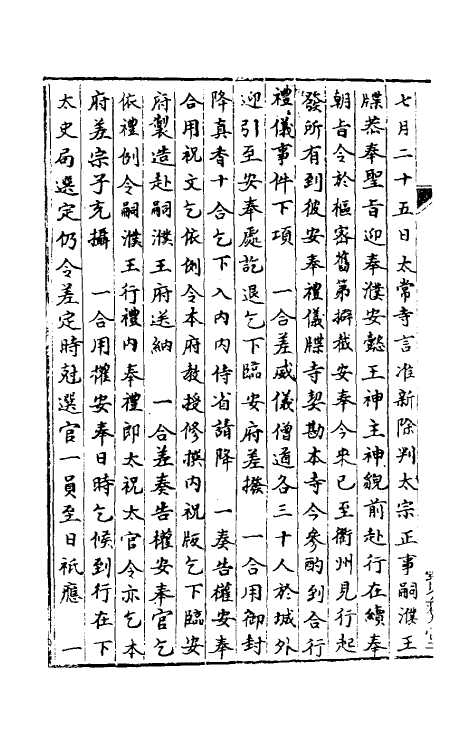 七月二十五日太常寺言准新除判太宗正事嗣濮王
牒恭奉聖旨迎奉濮安懿王神主神貌前赴行在續奉
朝旨令於樞密舊第擗截安奉今來已至衢州見行起
發所有到彼安奉禮儀牒寺契勘本寺今參酌到合行
禮儀事件下項　一合差威儀僧道各三十人於城外
迎引至安奉處訖退乞下臨安府差撥　一合用御封
降真香十合乞下入內內侍省請降　一奏告權安奉
合用祝文乞依例令本府教授修撰內祝版乞下臨安
府製造赴嗣濮王府送納　一合差奏告權安奉官乞
依禮例令嗣濮王行禮內奉禮郎太祝太官令亦乞本
府差宗子充攝　一合用權安奉日時乞候到行在下
太史局選定仍令差定時剋選官一員至日祇應　一